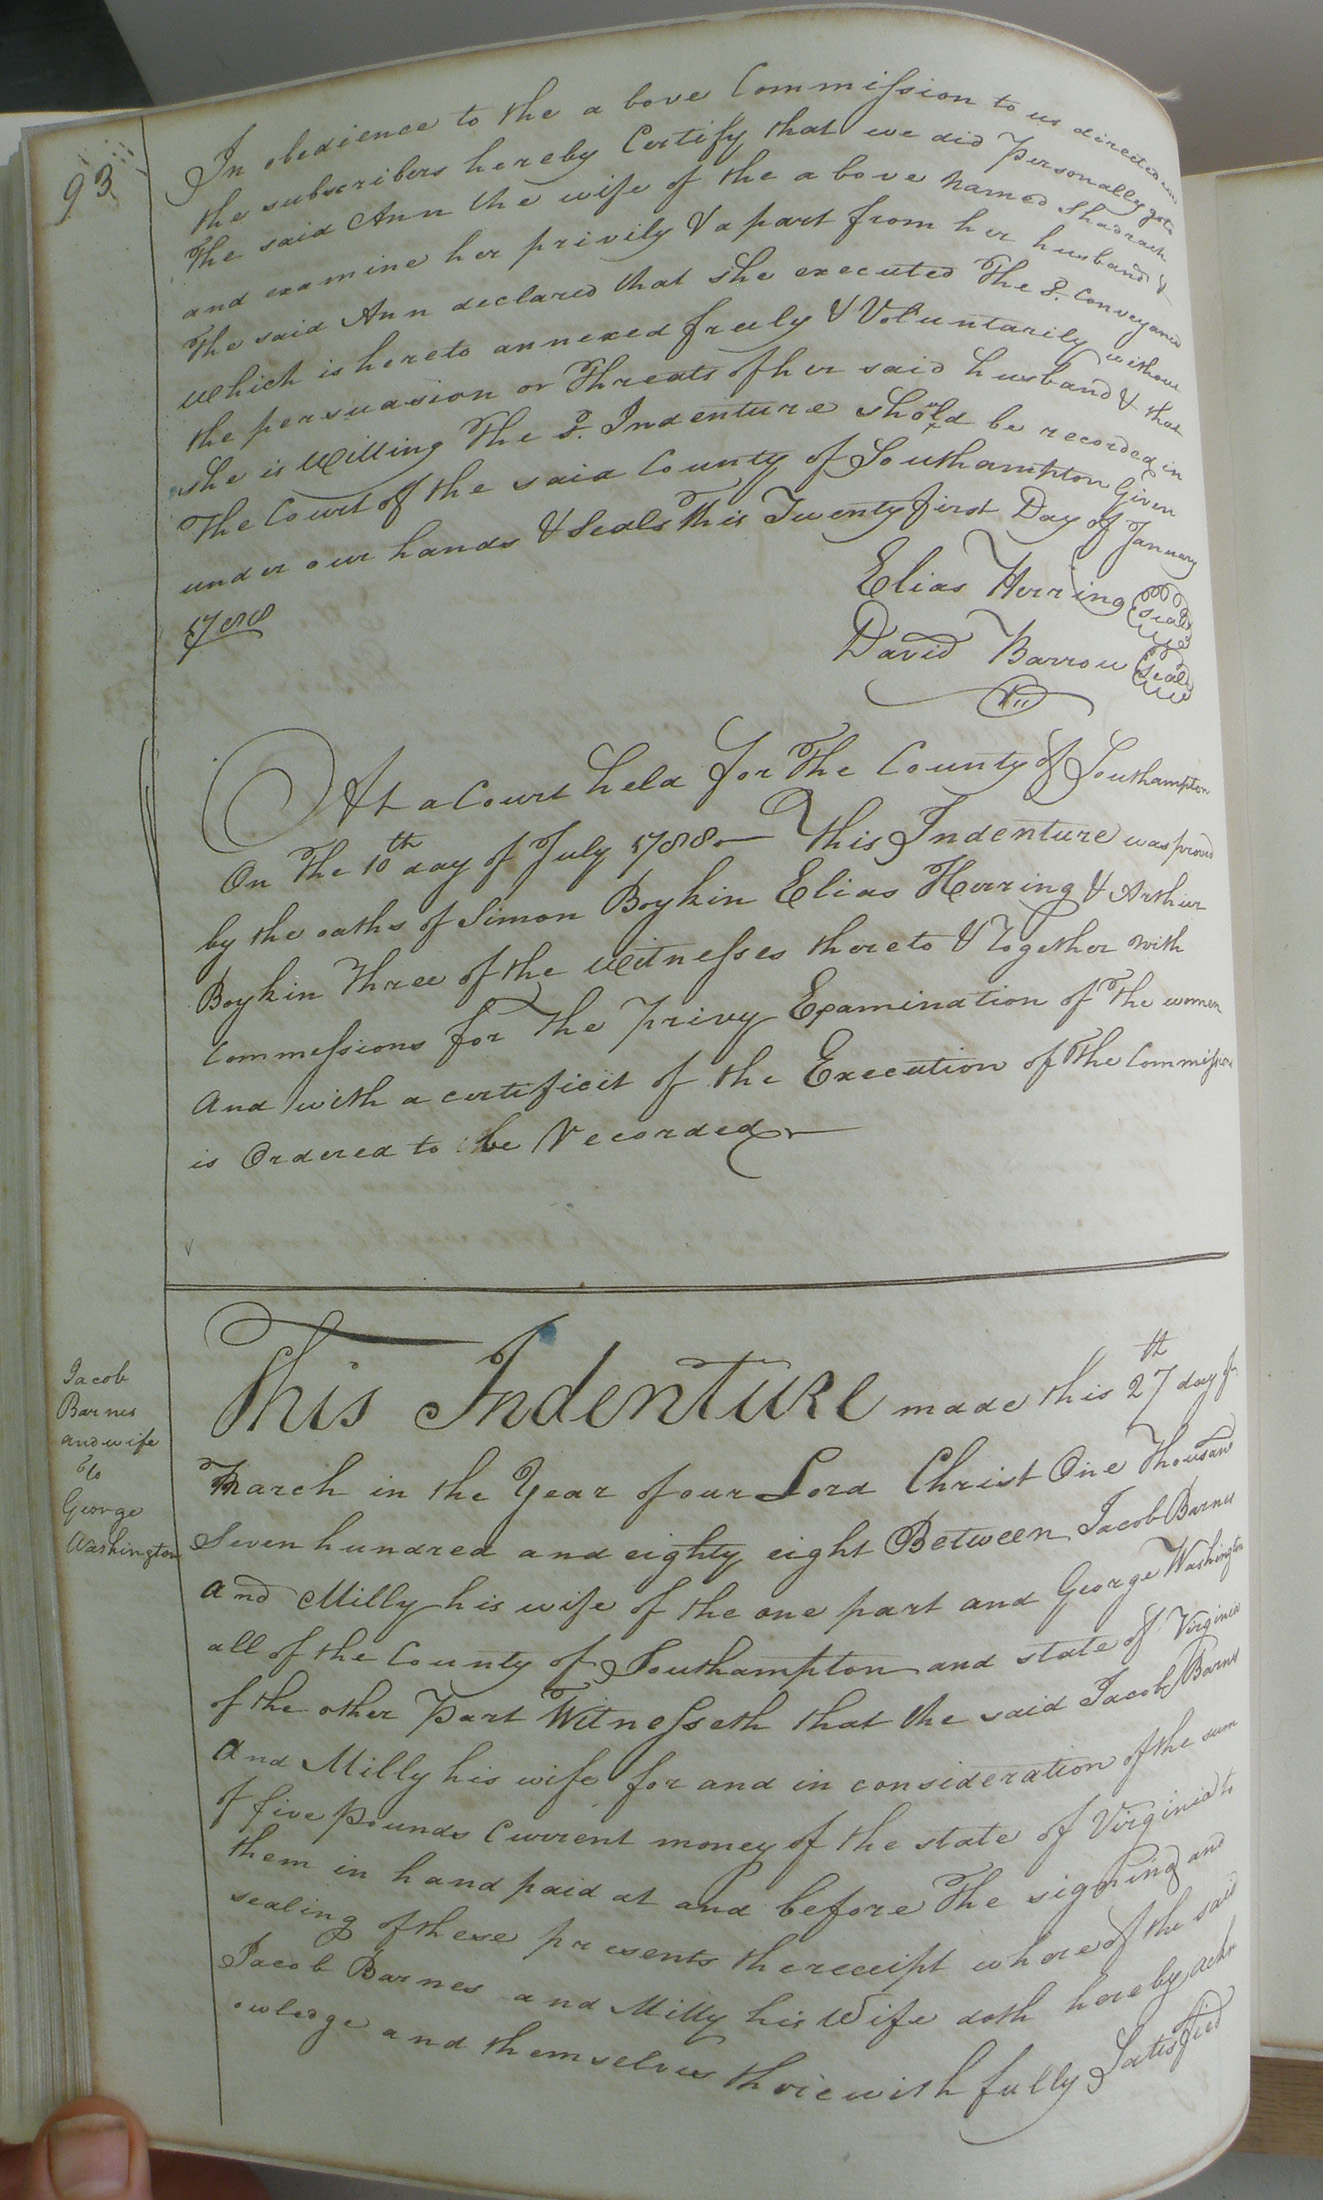 93
In obedience to the a bove Commission to us directed we
the subscribers hereby Certify that we did Personally go to
The said Ann the wife of the a bove named Shadrach
and examine her privily & a part from her husband &
The said Ann declared that she executed The sd. Conveyance
which is hereto annexed freely & Voluntarily without
the persuasion or Threats of her said husband & that
she is Willing The sd. Indenture should be recorded in
The Court of the said County of Southampton Given
under our hands & Seals This Twenty first Day of January
1788
Elias Herring Seal
David Barrow Seal
At a Court held for The County of Southampton
On The 10th day of July 1788. This Indenture was proved
by the oaths of Simon Boykin Elias Herring & Arthur
Boykin Three of the Witnesses thereto & Together with
Commessions for The Privy Examination of The women
And with a certificit of the Execution of The Commission
is Ordered to be Recorded
Jacob
Barnes
and wife
To
George
Washington
This Indenture made this 27th day of
March in the Year of our Lord Christ One Thousand
Seven hundred and eighty eight Between Jacob Barnes
and Milly his wife of the one part and George Washington
all of the County of Southampton and state of Virginia
of the other Part Witnesseth that the said Jacob Barnes
And Milly his wife for and in consideration of the sum
of five Pounds Current money of the state of Virginia to
them in hand paid at and before The signing and
sealing of these presents the receipt where of the said
Jacob Barnes and Milly his Wife doth hereby ackn
owledge and themselves therewith fully Satisfied